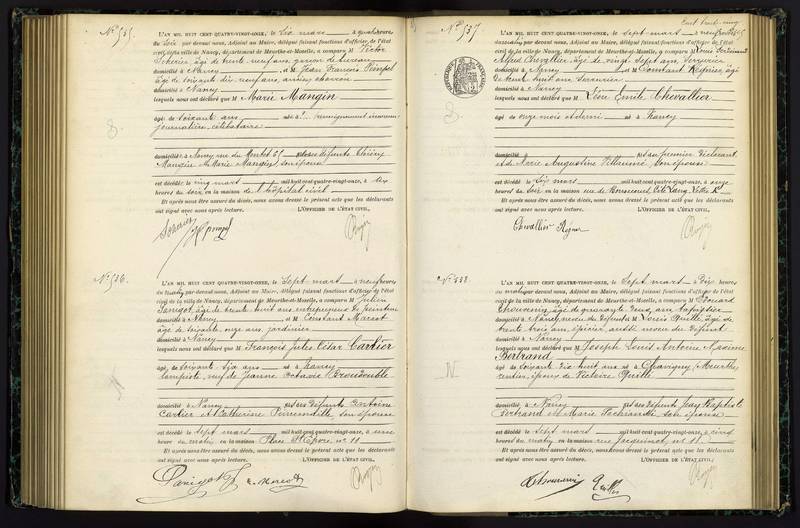 N° 535.
L'AN MIL HUIT CENT QUATRE-VINGT-ONZE, le Six mars à quatre heures
du Soir par devant nous, Adjoint au Maire, délégué faisant fonctions d'officier de l'état
civil de la ville de Nancy, département de Meurthe-et-Moselle, a comparu M Victor
âgé de trente neuf ans, garçon de bureau
domicilié à Nancy et M Jean François
âgé de soixante dix neuf ans, ancien charron
domicilié à Nancy
lesquels nous ont déclaré que M Marie Mangin
âgé de soixante ans né à
journalière, célibataire
domicilié à Nancy, rue du Montet 67 fils des défunts
Mangin et Marie Mangin son épouse
est décédé le cinq mars mil huit cent quatre-vingt-onze, à six
heures du soir en la maison de l'hôpital civil
Et après nous être assuré du décès, nous avons dressé le présent acte que les déclarants
ont signé avec nous après lecture. L'OFFICIER DE L'ÉTAT CIVIL,
N° 536.
L'AN MIL HUIT CENT QUATRE-VINGT-ONZE, le Sept mars à neuf heures
du matin par devant nous, Adjoint au Maire, délégué faisant fonctions d'officier de l'état
civil de la ville de Nancy, département de Meurthe-et-Moselle, a comparu M Julien
âgé de trente huit ans entrepreneur de peinture
domicilié à Nancy et M Constant Marcot
âgé de soixante onze ans, jardinier
domicilié à Nancy
lesquels nous ont déclaré que M François Jules César Cartier
âgé de soixante six ans né à Nancy
lampiste, veuf de Jeanne Octavie
domicilié à Nancy fils des défunts Antoine
Cartier et Catherine son épouse
est décédé le sept mars mil huit cent quatre-vingt-onze, à une
heure du matin en la maison Place St Epvre n° 11
Et après nous être assuré du décès, nous avons dressé le présent acte que les déclarants
ont signé avec nous après lecture. L'OFFICIER DE L'ÉTAT CIVIL,
N° 537
RÉPUBLIQUE FRANÇAISE
L'AN MIL HUIT CENT QUATRE-VINGT-ONZE, le Sept mars à neuf heures
du matin par devant nous, Adjoint au Maire, délégué faisant fonctions d'officier de l'état
civil de la ville de Nancy, département de Meurthe-et-Moselle, a comparu M Louis Ferdinand
Alfred Chevallier, âgé de vingt sept ans, serrurier
domicilié à Nancy et M Constant Régnier, âgé
de trente huit ans serrurier
domicilié à Nancy
lesquels nous ont déclaré que M Léon Emile Chevallier
âgé de onze mois et demi né à Nancy
domicilié fils du premier déclarant
et de Marie Augustine Villaumé son épouse
est décédé le Six mars mil huit cent quatre-vingt-onze, à onze
heures du Soir en la maison rue de Bonsecours, Cité
Et après nous être assuré du décès, nous avons dressé le présent acte que les déclarants
ont signé avec nous après lecture. L'OFFICIER DE L'ÉTAT CIVIL,
Chevallier
N° 538.
L'AN MIL HUIT CENT QUATRE-VINGT-ONZE, le Sept mars à Dix heures
du matin par devant nous, Adjoint au Maire, délégué faisant fonctions d'officier de l'état
civil de la ville de Nancy, département de Meurthe-et-Moselle, a comparu M Edouard
Thouvenin, âgé de quarante deux ans tapissier
domicilié à Nancy, neveu du défunt, et M Louis Quille âgé de
trente trois ans, épicier, aussi neveu du défunt
domicilié à Nancy
lesquels nous ont déclaré que M Joseph Louis Antoine
Bertrand
âgé de soixante dix huit ans né à Chavigny (Meurthe),
rentier, époux de Victoire Quille
domicilié à Nancy fils des défunts Jean Baptiste
Bertrand et Marie son épouse
est décédé le sept mars mil huit cent quatre-vingt-onze, à cinq
heures du matin en la maison rue Jacquinot n° 11
Et après nous être assuré du décès, nous avons dressé le présent acte que les déclarants
ont signé avec nous après lecture. L'OFFICIER DE L'ÉTAT CIVIL,